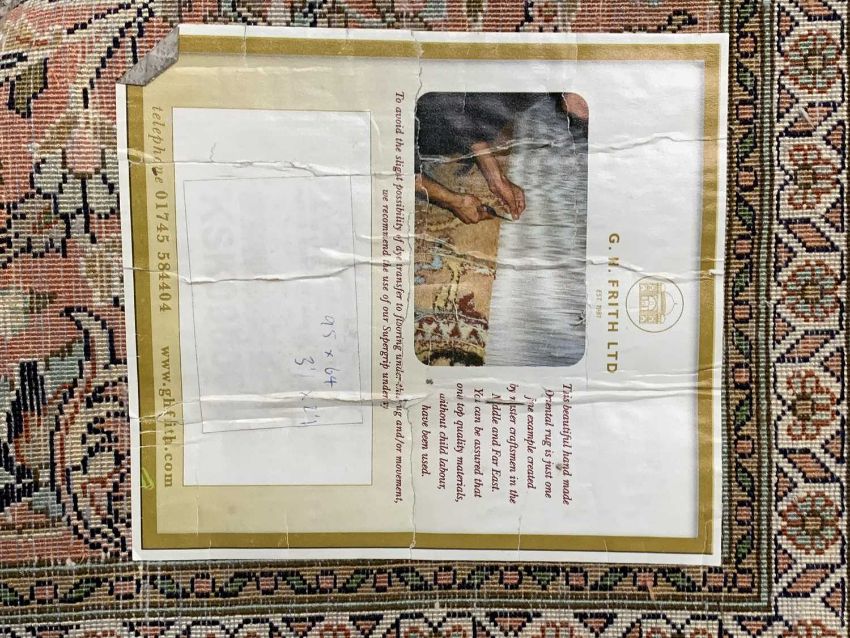 EST. 1980
G. H. FRITH LTD
This beautiful hand made
Oriental rug is just one
fine example created
by master craftsmen in the
Middle and Far East.
You can be assured that
only top quality materials,
without child labour,
have been used.
To avoid the slight possibility of dye transfer to flooring under the rug and/or movement,
we recommend the use of our Supergrip underlay
95 x 64
3' x 2'1
telephone 01745 584404 www.ghfrith.com